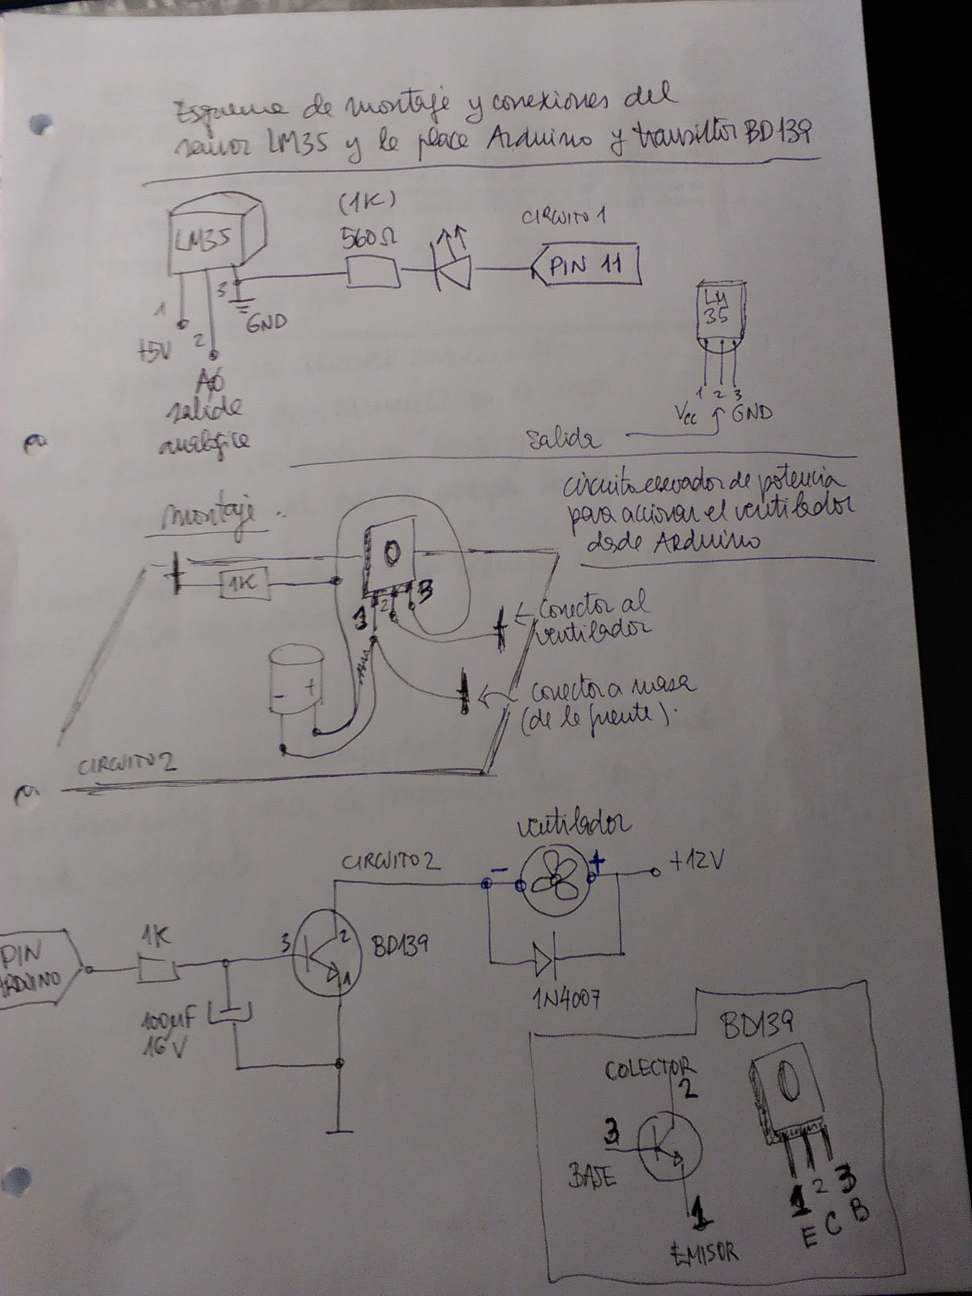 Esquema de montaje y conexiones del
sensor LM35 y la placa Arduino y transistor BD139
(1K)
560Ω
CIRCUITO 1
LM35
PIN 11
1
2
3
+5V
GND
A0
salida
analógica
LM
35
1 2 3
Vcc
GND
Salida
circuito elevador de potencia
para accionar el ventilador
desde Arduino
montaje.
1K
1
2
3
conector al
ventilador
- +
conector a masa
(de la fuente).
CIRCUITO 2
ventilador
CIRCUITO 2
-
+
+12V
PIN
ARDUINO
1K
3
2
1
BD139
100µF
16V
1N4007
BD139
COLECTOR
2
3
BASE
1
EMISOR
1 2 3
E C B